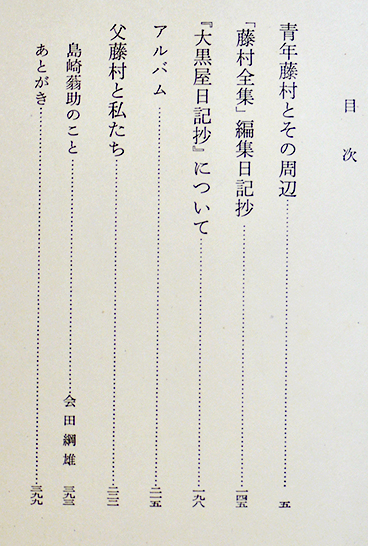 目次
青年藤村とその周辺……五
「藤村全集」編集日記抄……一四五
『大黒屋日記抄』について……一九八
アルバム……二一五
父藤村と私たち……二二三
島崎蓊助のこと……会田綱雄 三九三
あとがき……三九九